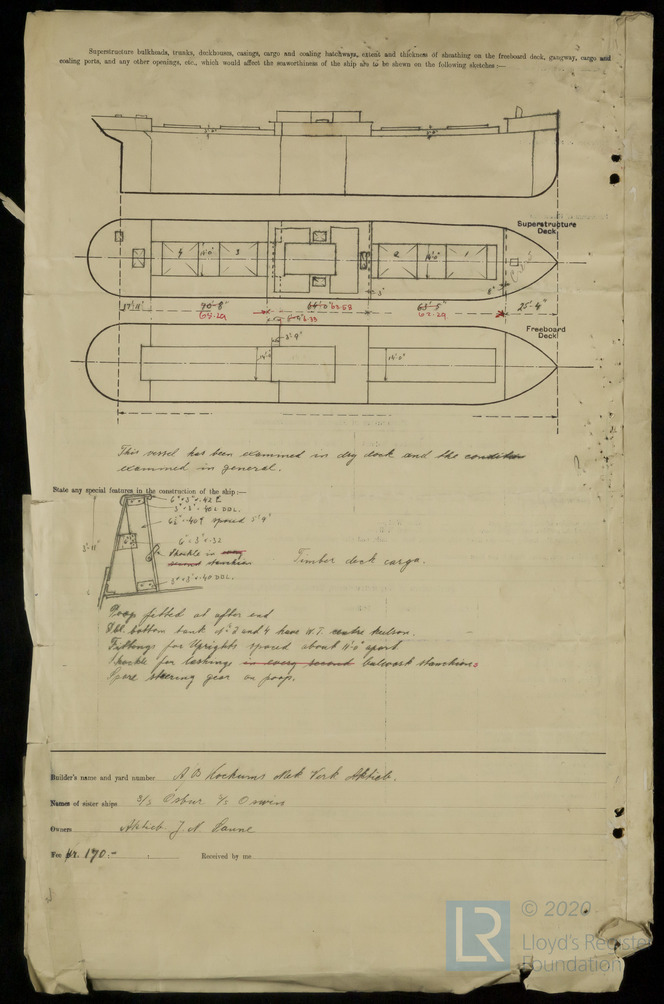 Superstructure bulkheads, trunks, deckhouses, casings, cargo and coaling hatchways, extent and thickness of sheathing on the freeboard deck, gangway, cargo and
coaling ports, and any other openings, etc., which would affect the seaworthiness of the ship are to be shown on the following sketches :—
Superstructure
Deck
4 3 2 1
17'-11" 70'-8" 64'-0" 63.58 63'-5" 25'-4"
68.29
Freeboard
Deck
3'-9"
This vessel has been examined in dry dock and the condition
examined in general.
State any special features in the construction of the ship :—
6"×3"×.42
3"×3"×.40 DBL.
spaced 5'9"
6"×3"×.32
3'-11"
Shackle in every
second stanchion
Timber deck cargo.
3"×3"×.40 DBL.
Poop fitted at after end
Dbl. bottom tank No 3 and 4 have W.T. centre keelson.
Fittings for Uprights spaced about 11'0" apart
Shackle for lashings in every second bulwark stanchions
Spare steering gear on poop.
Builder's name and yard number A. B. Kockums Mek Verk Aktieb.
Names of sister ships S/S Osbur S/S Oswin
Owners Aktieb. J. A.
Fee Kr. 170.-
Received by me
LR
© 2020
Lloyd's Register
Foundation